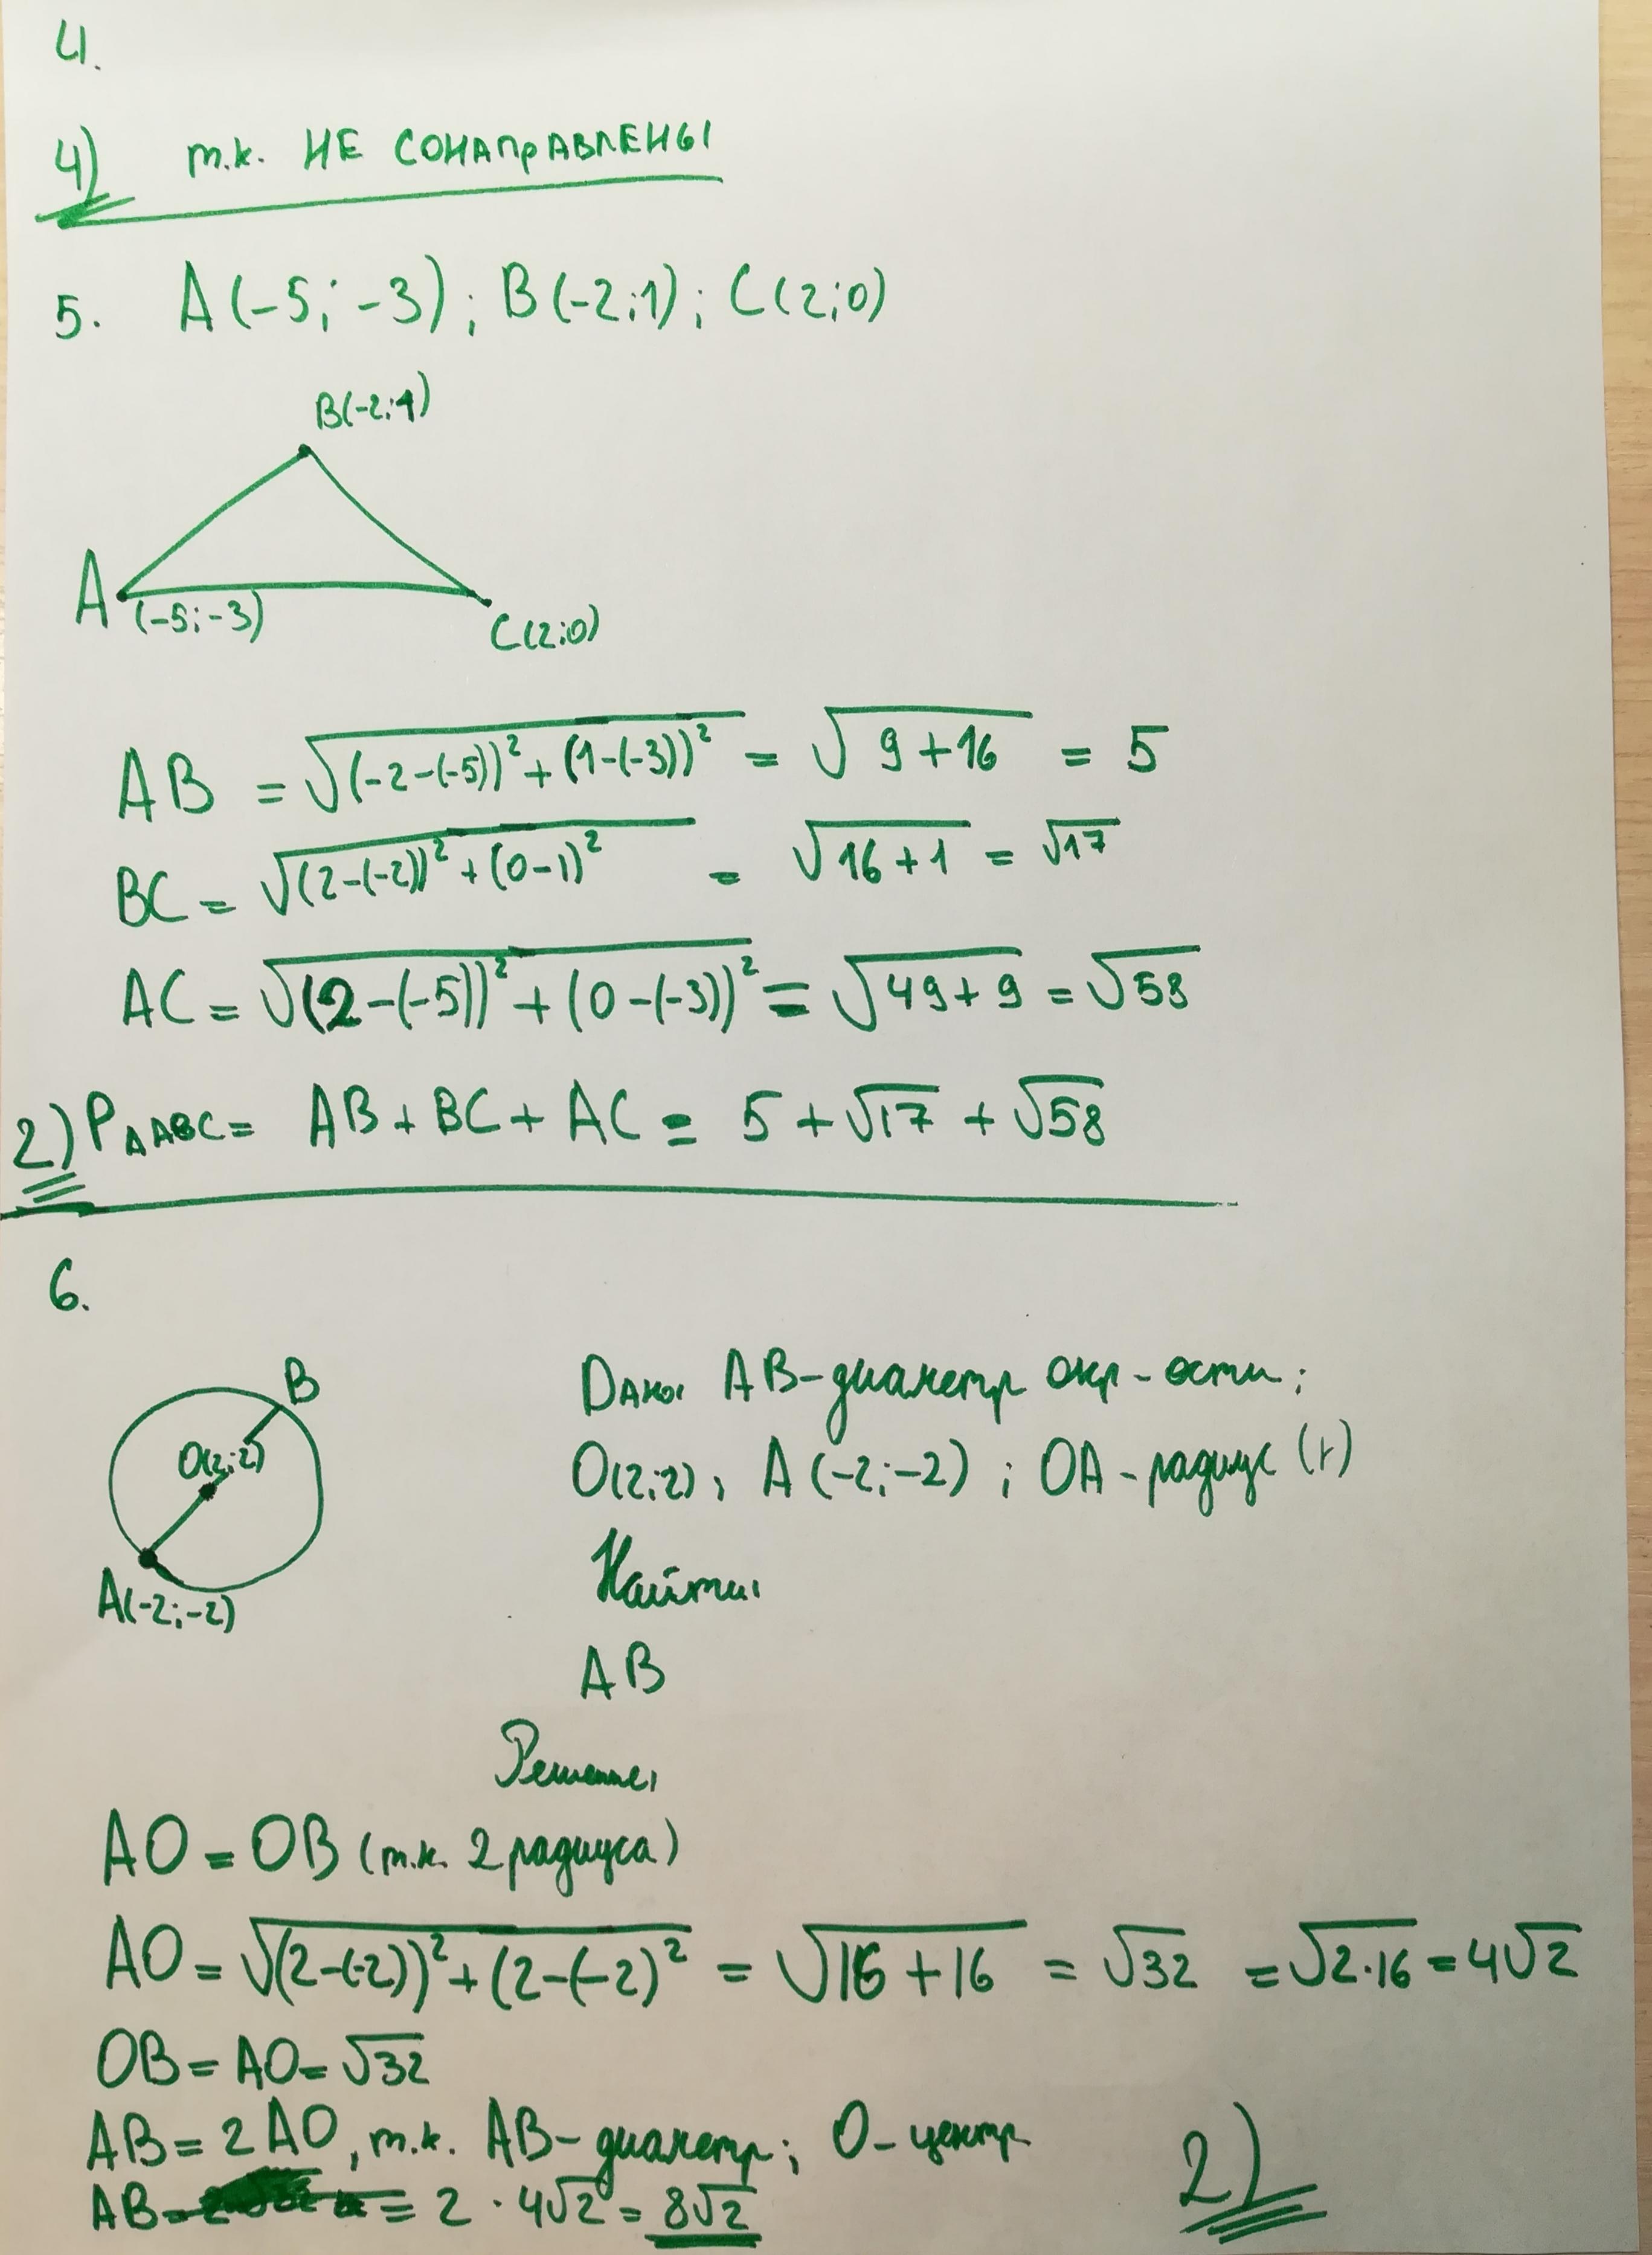 4.
4) т.к. НЕ СОНАПРАВЛЕНЫ
5. A(-5; -3); B(-2;1); C(2;0)
B(-2;1)
A (-5;-3)
C(2;0)
AB = √((-2-(-5))² + (1-(-3))²) = √(9+16) = 5
BC = √((2-(-2))² + (0-1)²) = √(16+1) = √17
AC = √((2-(-5))² + (0-(-3))²) = √(49+9) = √58
2) P△ABC = AB + BC + AC = 5 + √17 + √58
6.
B
O(2;2)
A(-2;-2)
Дано: AB-диаметр окр-ости;
O(2;2), A(-2;-2); OA-радиус (r)
Найти:
AB
Решение:
AO = OB (т.к. 2 радиуса)
AO = √((2-(-2))² + (2-(-2)²) = √(16+16) = √32 = √(2·16) = 4√2
OB = AO = √32
AB = 2AO, т.к. AB-диаметр; O-центр
AB = = 2 · 4√2 = 8√2
2)